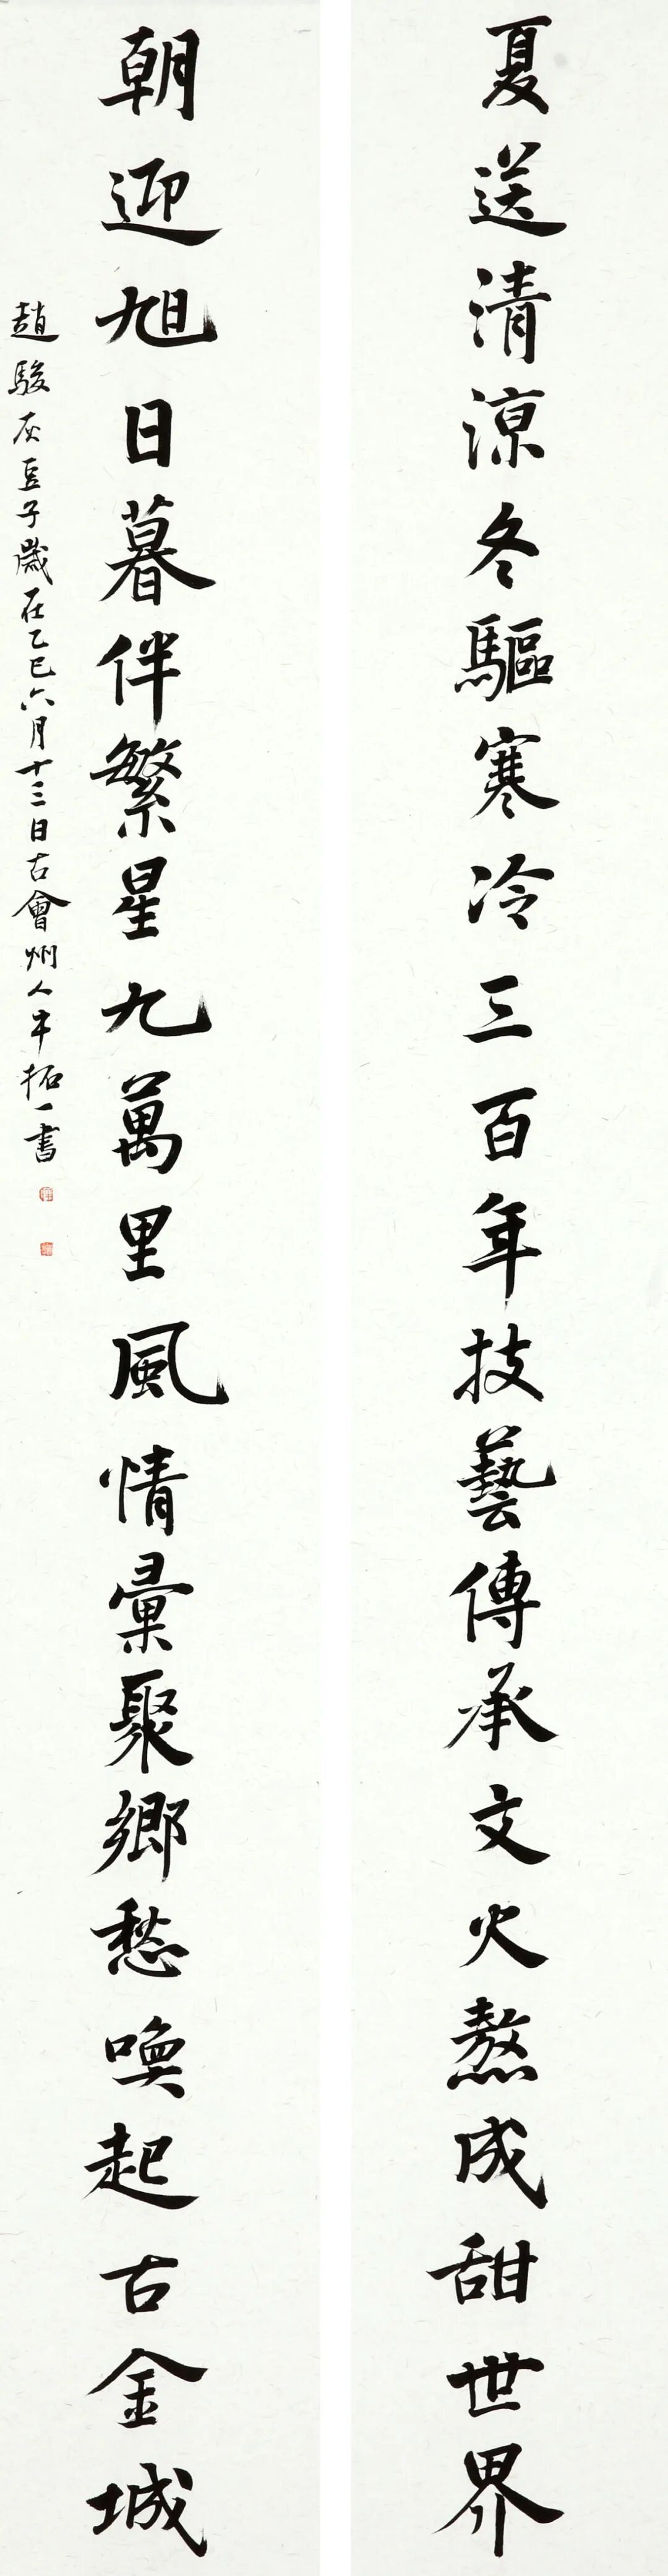 夏送清涼冬驅寒冷三百年技藝傳承文火熬成甜世界
朝迎旭日暮伴繁星九萬里風情彙聚鄉愁喚起古金城
趙駿灰豆子歲在乙巳六月十三日古會州人牛拓一書